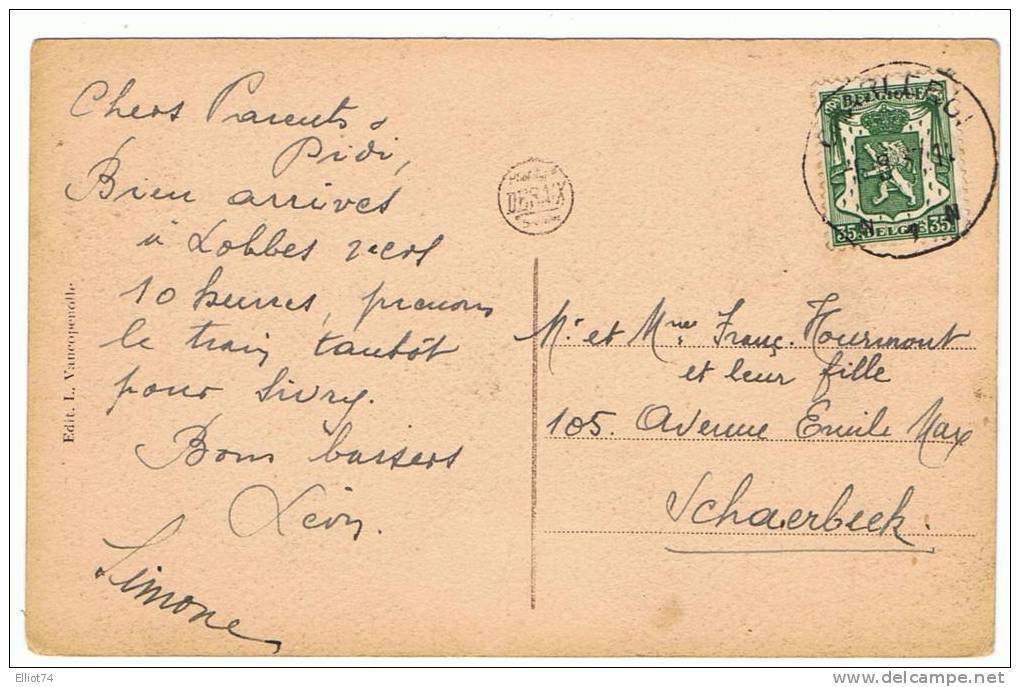 Chers Parents &
Didi,
Bien arrivés
à Lobbes vers
10 heures, prenons
le train tantôt
pour Sivry.
Bons baisers
Léon.
Simone
Edit. L. Vancopenolle
DESAIX
BELGIQUE
35 BELGIE 35
Mr et Mme Franç. Hourmont
et leur fille
105. Avenue Emile Max
Schaerbeek.
Elliot74
delcampe.net